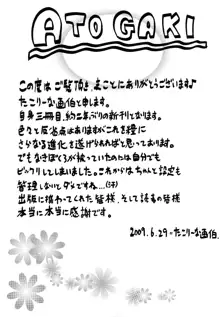 ATOGAKI
この度は ご覧頂き、まことにありがとうございます♪
たこりーな画伯と申します。
自身三冊目、約二年ぶりの新刊となります。
色々と反省点はありますがこれを糧に
さらなる進化を遂げられればと思っております。
でもなきぼくろが被っていたのには自分でも
ビックリしてしまいました。これからはちゃんと設定も
管理しないとダメですね…(汗)
出版に携わってくれた皆様、そして読者の皆様
本当に本当に感謝です。
2009.6.29 たこりーな画伯